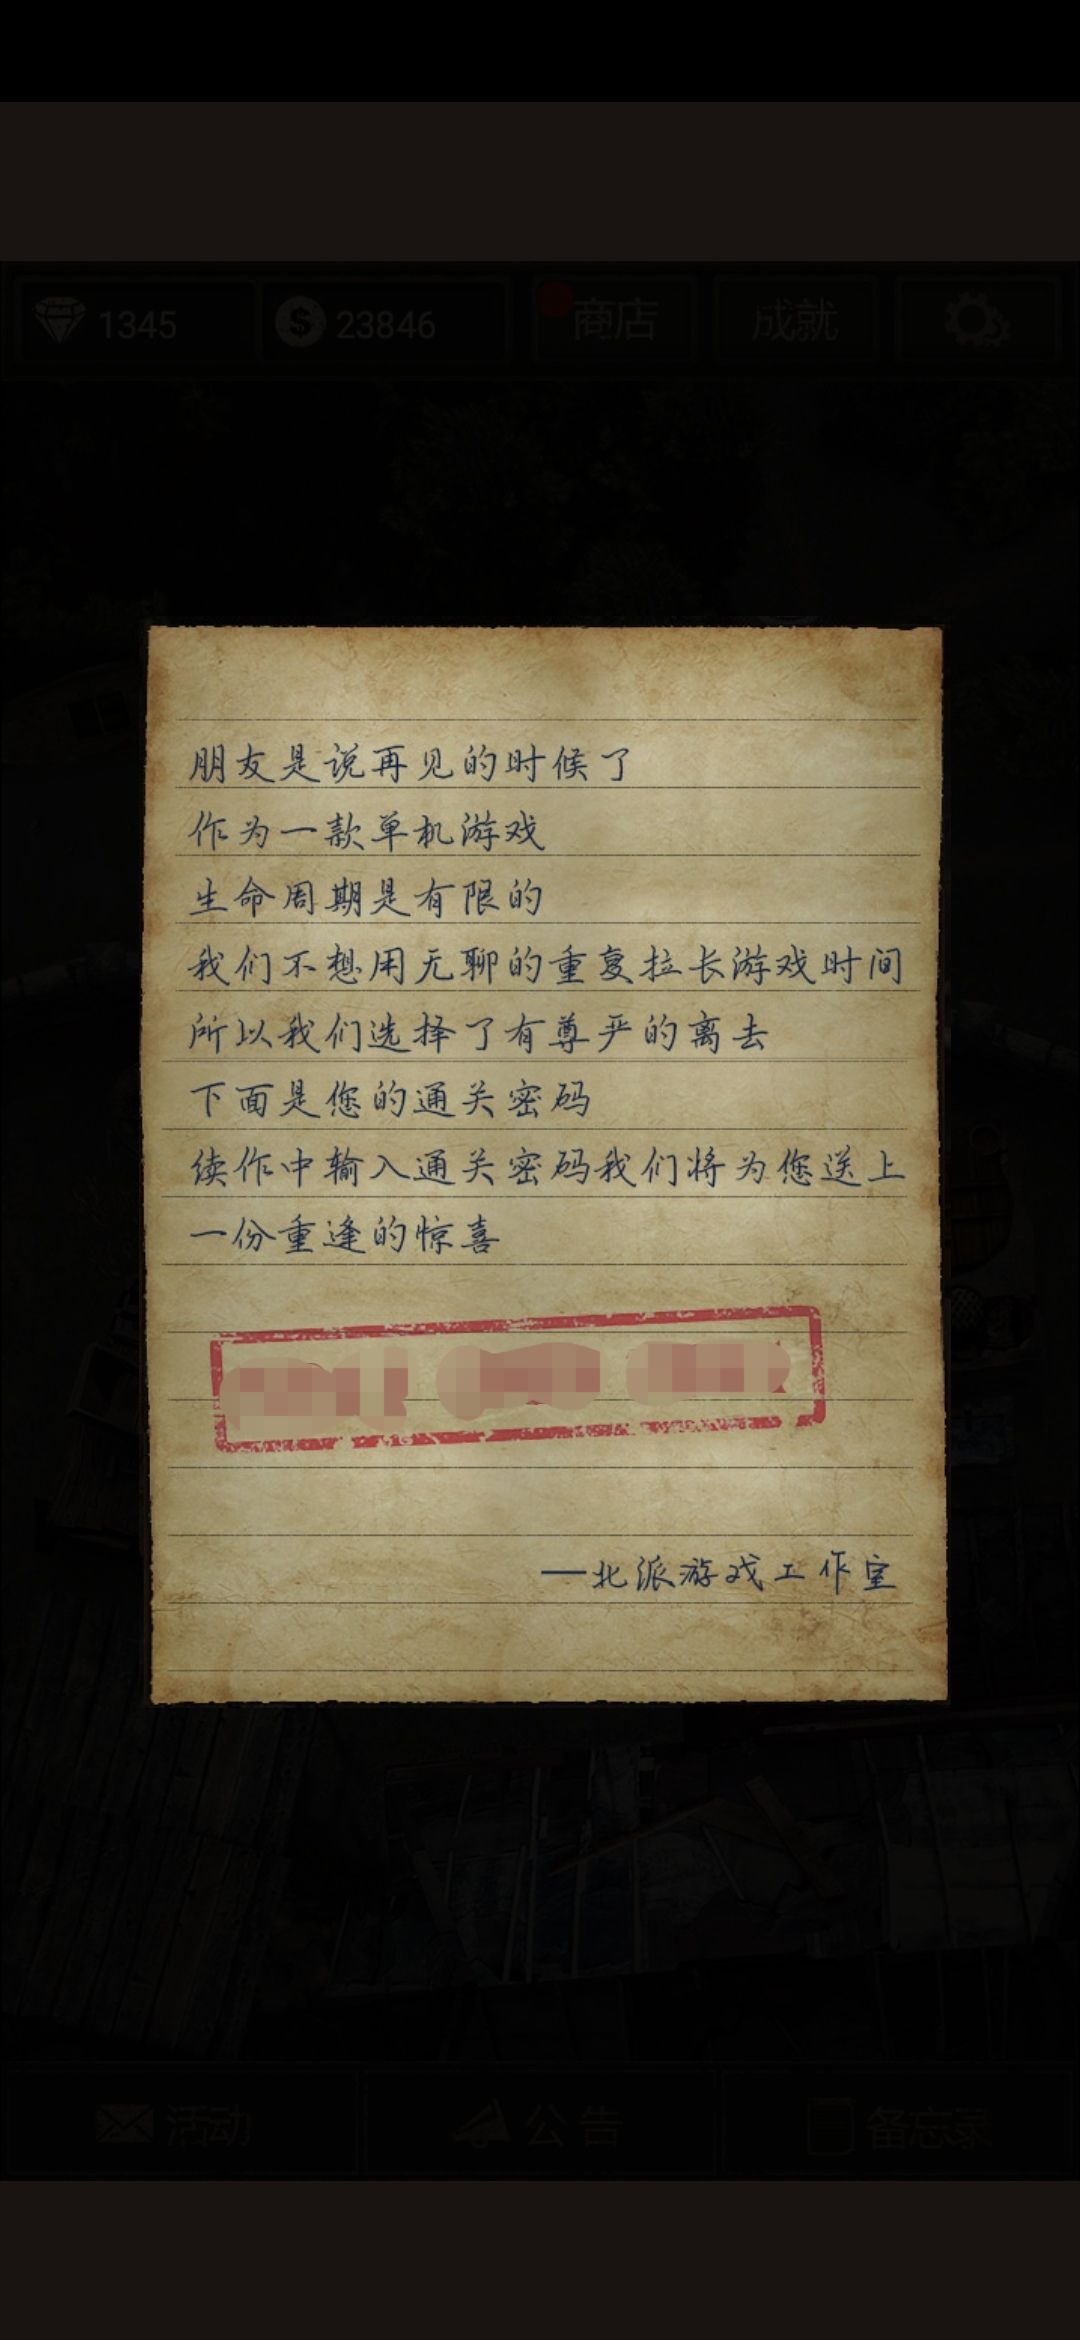 1345
23846
商店
成就
朋友是说再见的时候了
作为一款单机游戏
生命周期是有限的
我们不想用无聊的重复拉长游戏时间
所以我们选择了有尊严的离去
下面是您的通关密码
续作中输入通关密码我们将为您送上
一份重逢的惊喜
—北派游戏工作室
活动
公告
备忘录